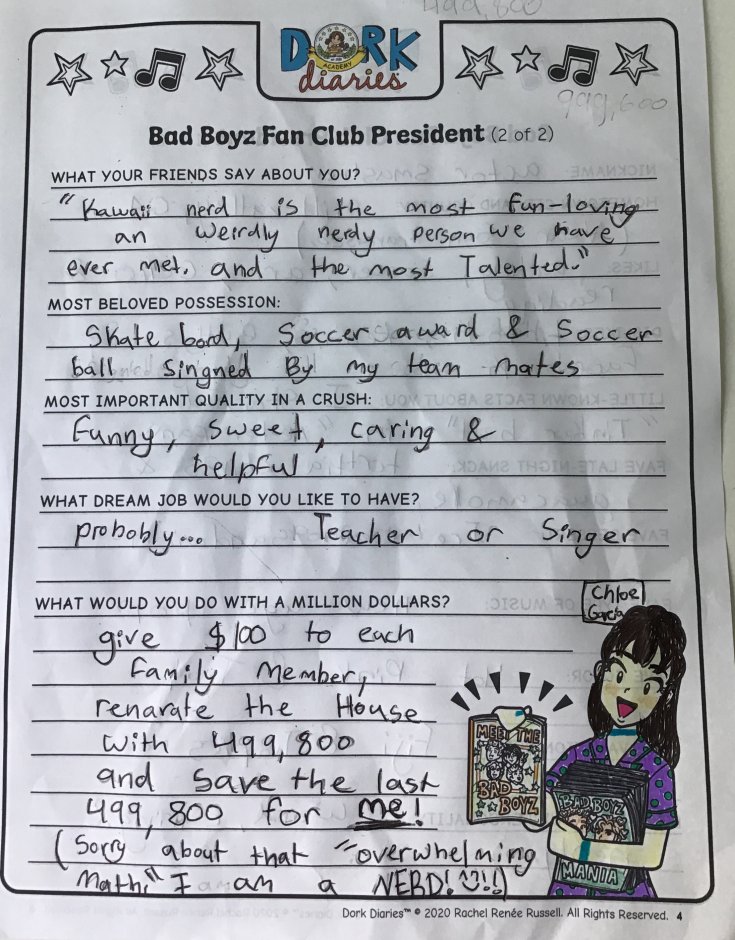 499,800
DORK
ACADEMY
diaries
999,600
Bad Boyz Fan Club President (2 of 2)
WHAT YOUR FRIENDS SAY ABOUT YOU?
"Kawaii nerd is the most fun-loving
an weirdly nerdy person we have
ever met. and the most Talented."
MOST BELOVED POSSESSION:
Skate bord, Soccer award & Soccer
ball singned By my team mates
MOST IMPORTANT QUALITY IN A CRUSH:
Funny, sweet, caring &
helpful
WHAT DREAM JOB WOULD YOU LIKE TO HAVE?
probobly... Teacher or Singer
WHAT WOULD YOU DO WITH A MILLION DOLLARS?
Chloe
Garcia
give $100 to each
family member,
renarate the House
with 499,800
and save the last
499,800 for me!
(Sorry about that "overwhelming
math," I am a NERD! !!)
MEET THE
BAD
BOYZ
BAD BOYZ
MANIA
Dork Diaries™ © 2020 Rachel Renée Russell. All Rights Reserved. 4